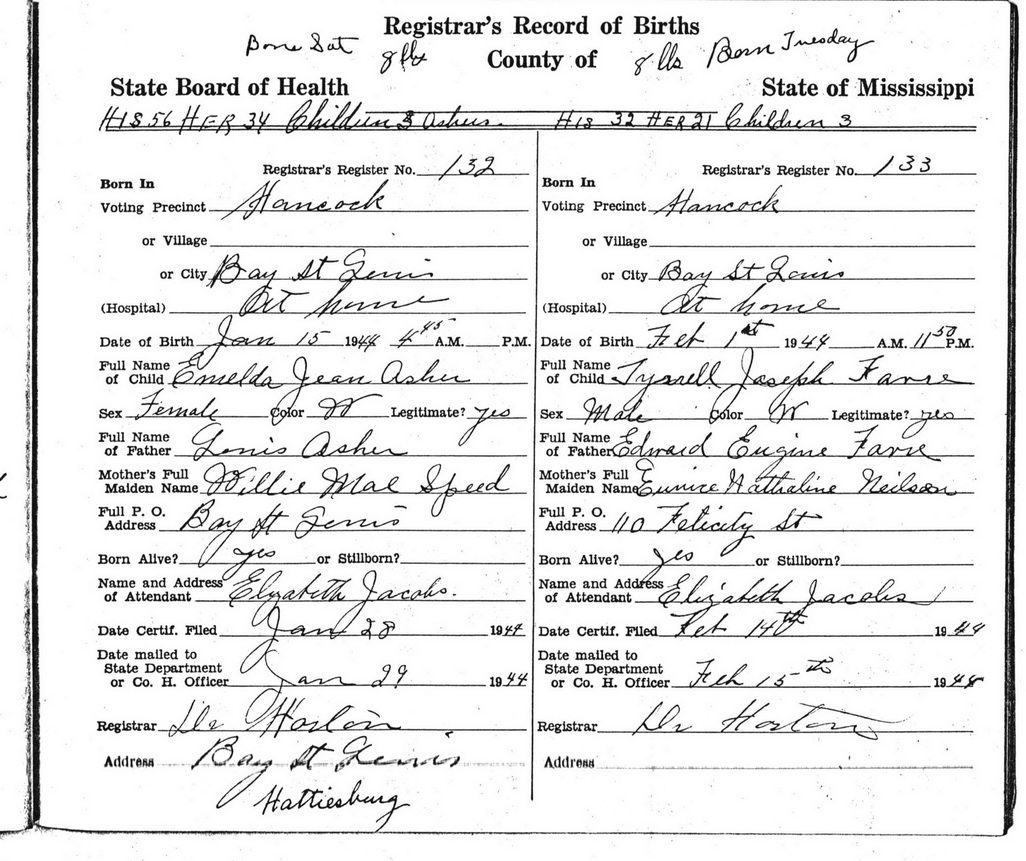 Registrar's Record of Births
Born Sat 8 lbs County of 8 lbs Born Tuesday
State Board of Health State of Mississippi
HIS 56 HER 34 Children 3 Ashers. HIS 32 HER 21 Children 3
Registrar's Register No. 132
Born In
Voting Precinct Hancock
or Village
or City Bay St Louis
(Hospital) At home
Date of Birth Jan 15 1944 4 45 A.M. P.M.
Full Name
of Child Emelda Jean Asher
Sex Female Color W Legitimate? yes
Full Name
of Father Louis Asher
Mother's Full
Maiden Name Willie Mae Speed
Full P. O.
Address Bay St Louis
Born Alive? yes or Stillborn?
Name and Address
of Attendant Elizabeth Jacobs.
Date Certif. Filed Jan 28 1944
Date mailed to
State Department
or Co. H. Officer Jan 29 1944
Registrar Dr Horton
Address Bay St Louis
Hattiesburg
Registrar's Register No. 133
Born In
Voting Precinct Hancock
or Village
or City Bay St Louis
(Hospital) At home
Date of Birth Feb 1st 1944 A.M. 11 50 P.M.
Full Name
of Child Tyrrell Joseph Favre
Sex Male Color W Legitimate? yes
Full Name
of Father Edward Eugine Favre
Mother's Full
Maiden Name Eunice Nathaline Neilson
Full P. O.
Address 110 Felicity St
Born Alive? yes or Stillborn?
Name and Address
of Attendant Elizabeth Jacobs
Date Certif. Filed Feb 14th 1944
Date mailed to
State Department
or Co. H. Officer Feb 15th 1944
Registrar Dr Horton
Address